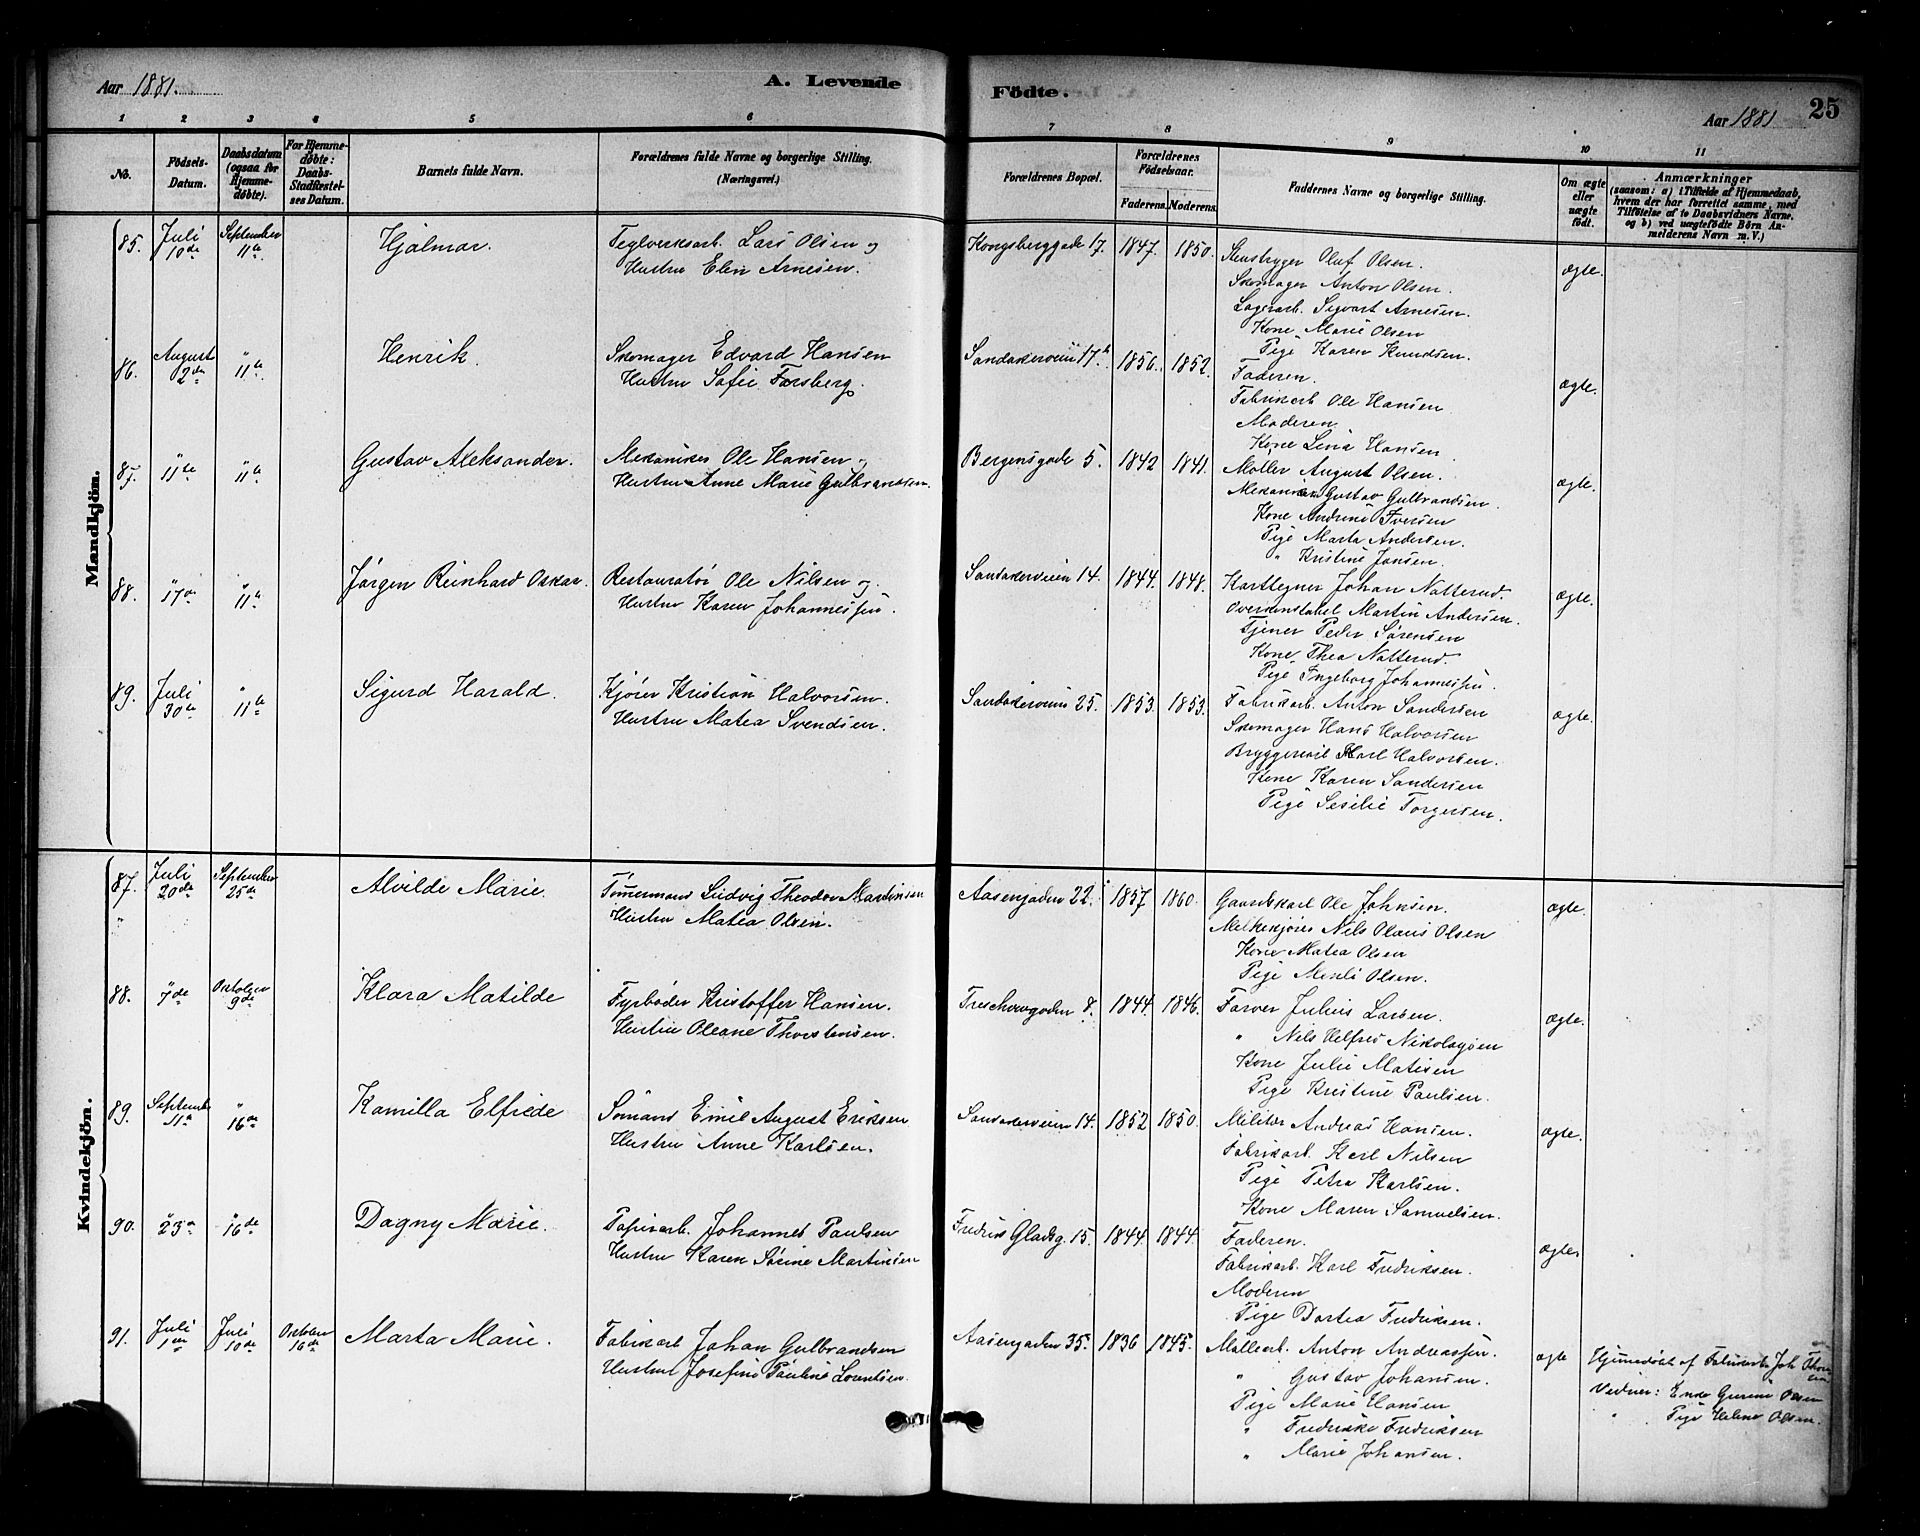 Aar 1881.
A. Levende
Födte.
Aar 1881
25
1 2 3 4 5 6 7 8 9 10 11
No.
Fødsels-
Datum.
Daabsdatum
(ogsaa for
Hjemme-
døbte).
For Hjemme-
døbte:
Daabs-
Stadfæstel-
ses Datum.
Barnets fulde Navn.
Forældrenes fulde Navne og borgerlige Stilling.
(Næringsvei.)
Forældrenes Bopæl.
Forældrenes
Fødselsaar.
Faderens. Moderens.
Faddernes Navne og borgerlige Stilling.
Om ægte
eller
uægte
født.
Anmærkninger
(saasom: a) i Tilfælde af Hjemmedaab,
hvem der har forrettet samme, med
Tilføielse af to Daabsvidners Navne,
og b) ved uægtefødte Børn An-
melderens Navn m. V.)
Mandkjön.
85. Juli 10de September 11te
Hjalmar.
Teglverksarb. Lars Olsen og
Hustru Elen Arnesen.
Kongsberggade 17. 1847. 1850.
Stenhugger Oluf Olsen.
Skomager Anton Olsen.
Lagerarb. Sigvart Arnesen.
Kone Marie Olsen
Pige Karen Knudsen.
ægte.
86. August 2den " 11te
Henrik.
Skomager Edvard Hansen
Hustru Sofie Forsberg.
Sandakerveien 17b. 1856. 1852.
Faderen.
Fabrikarb Ole Hansen
Moderen
Kone Lina Hansen
ægte.
87. " 11te " 11te
Gustav Aleksander.
Mekaniker Ole Hansen og
Hustru Anne Marie Gulbrandsen.
Bergensgade 5. 1842 1841.
Møller August Olsen.
Mekaniker Gustav Gulbrandsen.
Kone Andrine Iversen
Pige Marta Andersen.
" Kristine Jansen.
ægte.
88. " 17de " 11te
Jørgen Reinhard Oskar.
Restauratør Ole Nilsen og
Hustru Karen Johannessen.
Sandakerveien 14. 1844. 1848.
Kartlegner Johan Natterud.
Overkonstabel Martin Andersen.
Tjener Peder Sørensen
Kone Thea Natterud.
Pige Ingeborg Johannessen.
ægte.
89. Juli 30te " 11te
Sigurd Harald.
Kjører Kristian Halvorsen.
Hustru Matea Svendsen.
Sandakerveien 25. 1853. 1853.
Fabrikarb. Anton Sandersen
Skomager Hans Halvorsen
Bryggerikarl Karl Halvorsen.
Kone Karen Sandersen
Pige Sesilie Torgersen.
ægte.
Kvindekjön.
87. Juli 20de September 25de
"
Alvilde Marie.
Tømermand Ludvig Theodor Martinsen
Hustru Matea Olsen.
Aasengaden 22. 1857 1860.
Gaardskarl Ole Johnsen.
Melkekjører Nils Olaus Olsen
Kone Matea Olsen
Pige Merli Olsen.
ægte.
88. " 7de Oktober 9de
Klara Matilde
Fyrbøder Kristoffer Hansen.
Hustru Oleane Thorstensen.
Treschowgaden 8. 1844. 1846.
Farver Julius Larsen.
" Nils Helfred Nikolaysen
Kone Julie Matisen
Pige Kristine Paulsen.
ægte.
89. September 11te " 16de
Kamilla Elfride
Sømand Emil August Eriksen
Hustru Anne Karlsen.
Sandakerveien 14. 1852 1850.
Militær Andreas Hansen.
Fabrikarb. Karl Nilsen
Pige Petra Karlsen.
Kone Maren Samuelsen.
ægte.
90. " 23de " 16de
Dagny Marie.
Papirarb. Johannes Paulsen
Hustru Karen Sørine Martinsen
Fredrik Gladsg. 15. 1844. 1844.
Faderen.
Fabrikarb. Karl Fredriksen.
Moderen
Pige Dortea Fredriksen.
ægte
91. Juli 1ste Juli 10de Oktober 16de
Marta Marie.
Fabrikarb Johan Gulbrandsen
Hustru Josefine Pauline Lorentsen.
Aasengaden 35. 1836 1845.
Møllearb. Anton Andreassen.
" Gustav Johansen.
Pige Marie Hansen
" Fredrikke Fredriksen
" Marie Johansen.
ægte
Hjemedøbt af Fabrikarb. Joh
Vidner: Enke Gurine Olsen
" Pige Helene Olsen.